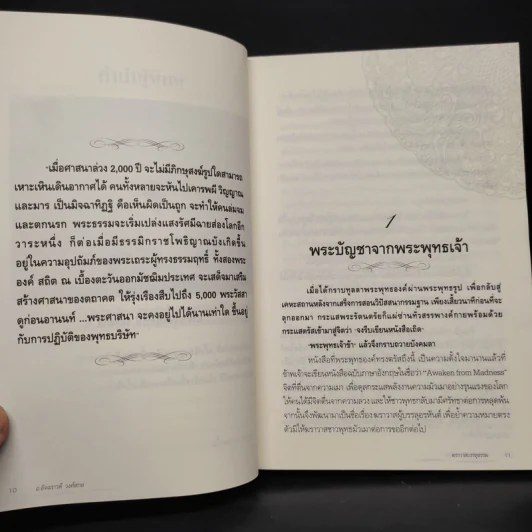 "เมื่อศาสนาล่วง 2,000 ปี จะไม่มีภิกษุสงฆ์รูปใดสามารถ
เหาะเหินเดินอากาศได้ คนทั้งหลายจะหันไปเคารพผี วิญญาณ
และมาร เป็นมิจฉาทิฏฐิ คือเห็นผิดเป็นถูก จะทำให้คนล่มจม
และตกนรก พระธรรมจะเริ่มเปล่งแสงรัศมีฉายส่องโลกอีก
วาระหนึ่ง ก็ต่อเมื่อมีธรรมิกราชโพธิญาณบังเกิดขึ้น
อยู่ในความอุปถัมภ์ของพระเถระผู้ทรงธรรมฤทธิ์ ทั้งสองพระ
องค์ สถิต ณ เบื้องตะวันออกมัชฌิมประเทศ จะเสด็จมาเสริม
สร้างศาสนาของตถาคต ให้รุ่งเรืองสืบไปถึง 5,000 พระวัสสา
ดูก่อนอานนท์ ...พระศาสนา จะคงอยู่ไปได้นานเท่าใด ขึ้นอยู่
กับการปฏิบัติของพุทธบริษัท"
10
1
พระบัญชาจากพระพุทธเจ้า
เมื่อได้กราบทูลลาพระพุทธองค์ผ่านพระพุทธรูป เพื่อกลับสู่
เคหะสถานหลังจากเสร็จการสอนวิปัสสนากรรมฐาน เพียงเสี้ยวนาทีก่อนที่จะ
ลุกออกมา กระแสพระรัตนตรัยก็แผ่ซ่านทั่วสรรพางค์กายพร้อมด้วย
กระแสตรัสเข้ามาสู่จิตว่า "จงรีบเขียนหนังสือเถิด"
"พระพุทธเจ้าข้า" แล้วจึงกราบถวายบังคมลา
หนังสือที่พระพุทธองค์ทรงตรัสถึงนี้ เป็นความตั้งใจมานานแล้วที่
ข้าพเจ้าจะเขียนหนังสือฉบับภาษาอังกฤษในชื่อว่า "Awaken from Madness"
จิตที่ตื่นจากความเมา เพื่อดุลกระแสพลังงานความมัวเมาอย่างรุนแรงของโลก
ให้คนได้มีจิตตื่นจากความลวง และให้ชาวพุทธกลับมามีศรัทธาต่อการหลุดพ้น
จากนั้นจึงพัฒนามาเป็นชื่อเรื่อง ฆราวาสผู้บรรลุอรหันต์ เพื่อย้ำความหมายตรง
ตัวมิให้ฆราวาสชาวพุทธมัวเมาต่อการขออีกต่อไป
11